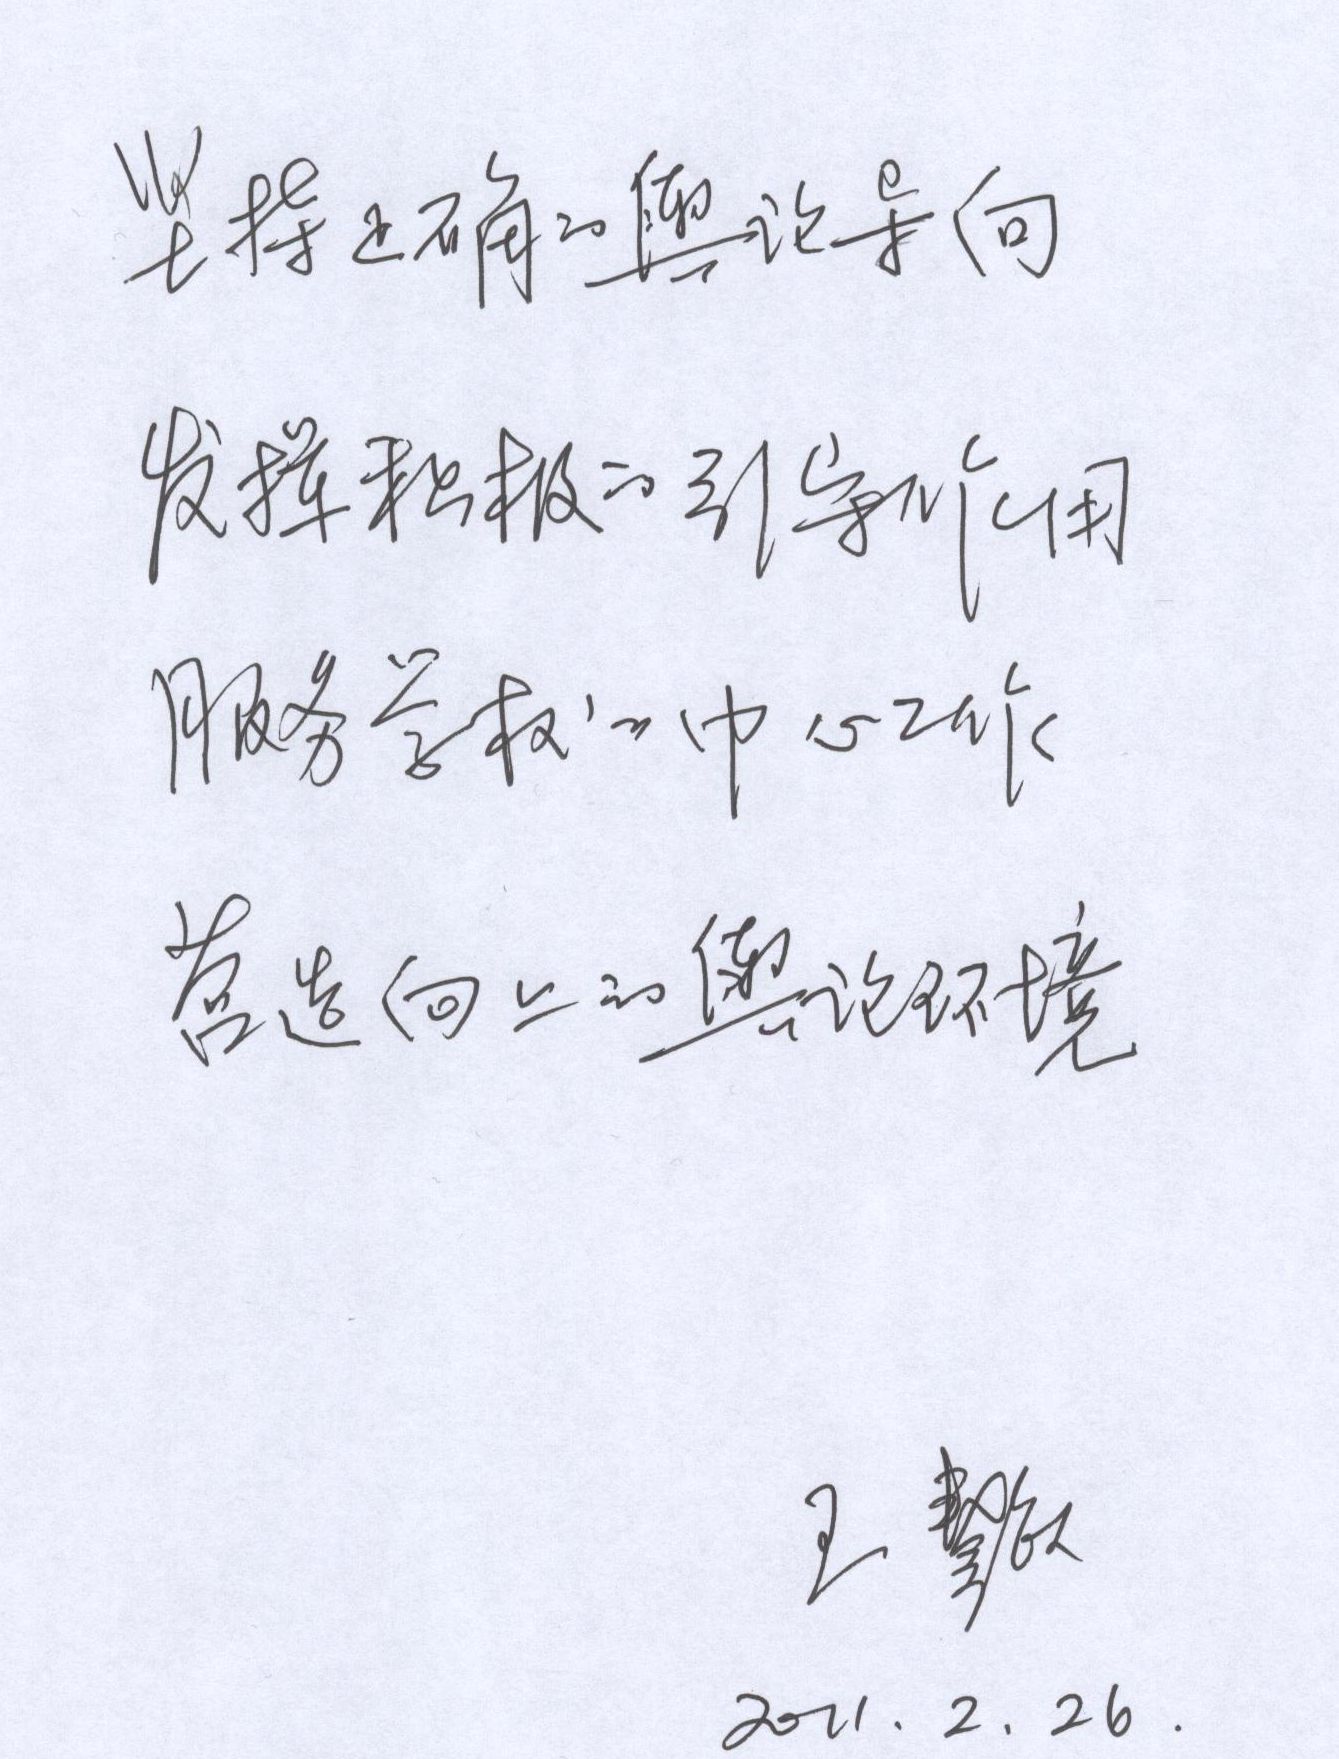 坚持正确的舆论导向
发挥积极的引导作用
服务学校的中心工作
营造向上的舆论环境
王
2011.2.26.